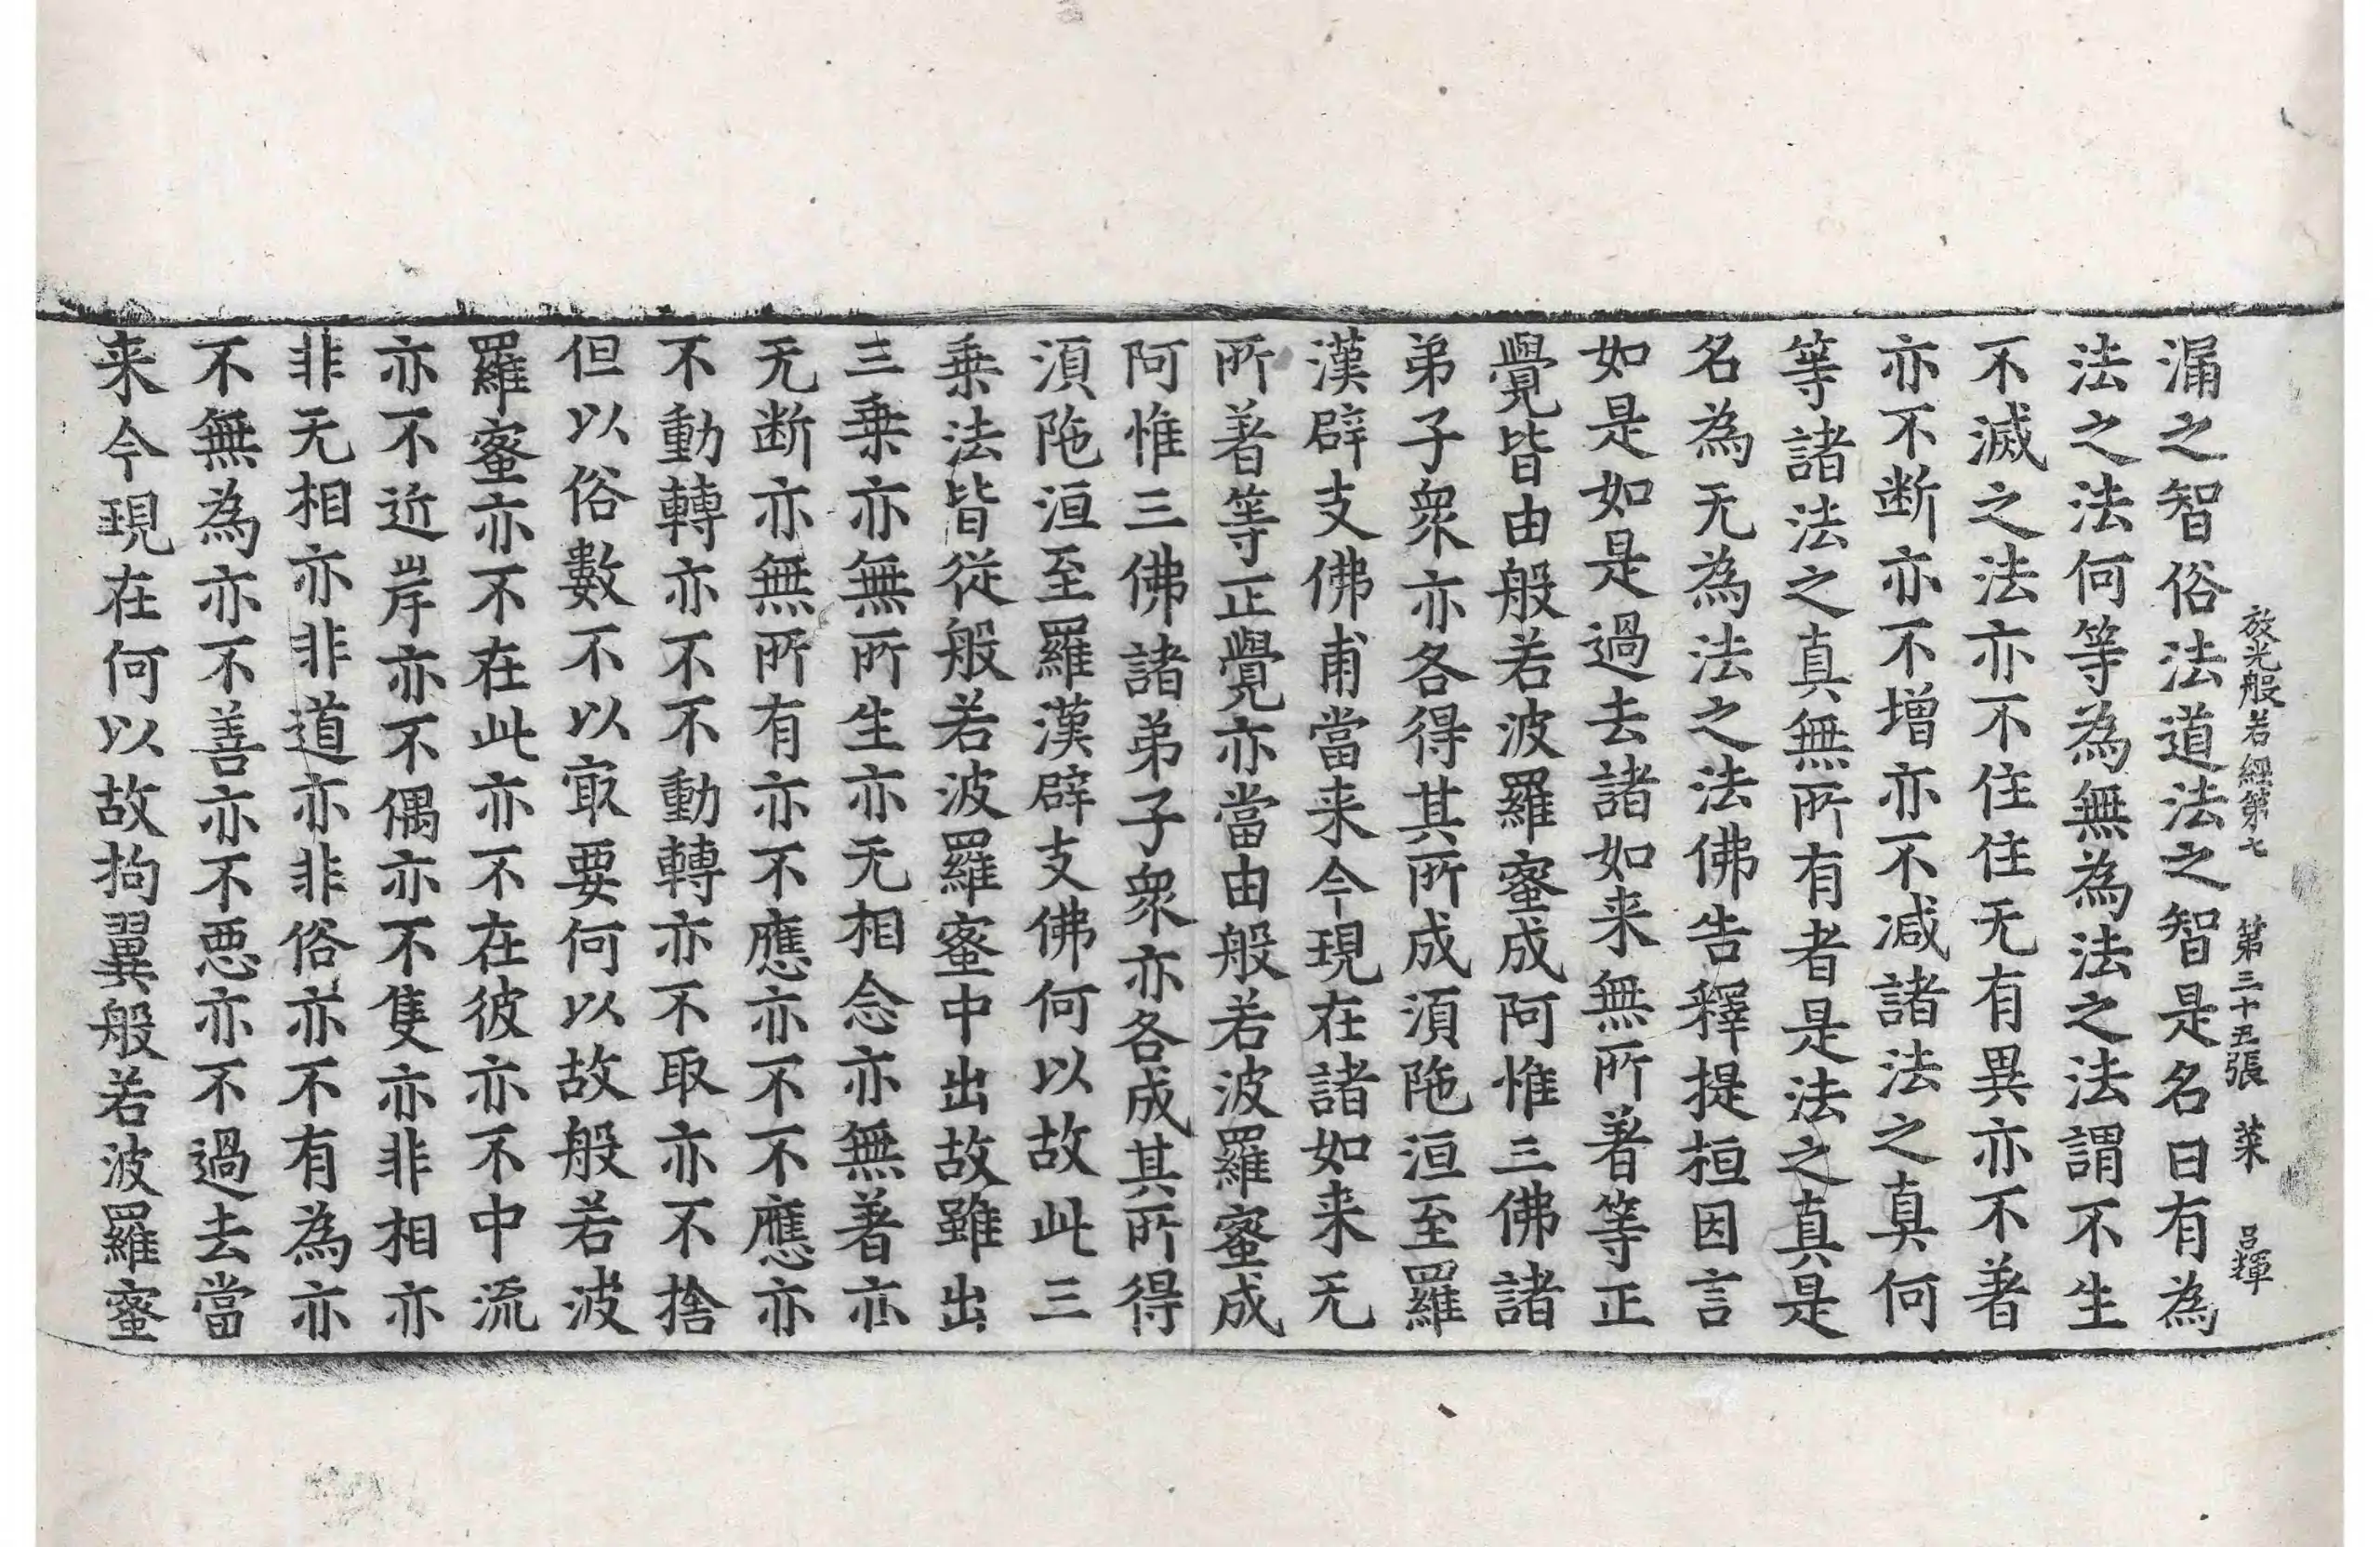 放光般若經第七　第三十五張　菜　呂輝
漏之智俗法道法之智是名曰有為
法之法何等為無為法之法謂不生
不滅之法亦不住住无有異亦不著
亦不断亦不增亦不減諸法之真何
等諸法之真無所有者是法之真是
名為无為法之法佛告釋提桓因言
如是如是過去諸如来無所著等正
覺皆由般若波羅蜜成阿惟三佛諸
弟子衆亦各得其所成湏陁洹至羅
漢辟支佛甫當来今現在諸如来无
所著等正覺亦當由般若波羅蜜成
阿惟三佛諸弟子衆亦各成其所得
湏陁洹至羅漢辟支佛何以故此三
乗法皆從般若波羅蜜中出故雖出
三乗亦無所生亦无相念亦無著亦
无断亦無所有亦不應亦不不應亦
不動轉亦不不動轉亦不取亦不捨
但以俗數不以㝡要何以故般若波
羅蜜亦不在此亦不在彼亦不中流
亦不近岸亦不偶亦不隻亦非相亦
非无相亦非道亦非俗亦不有為亦
不無為亦不善亦不悪亦不過去當
来今現在何以故拘翼般若波羅蜜